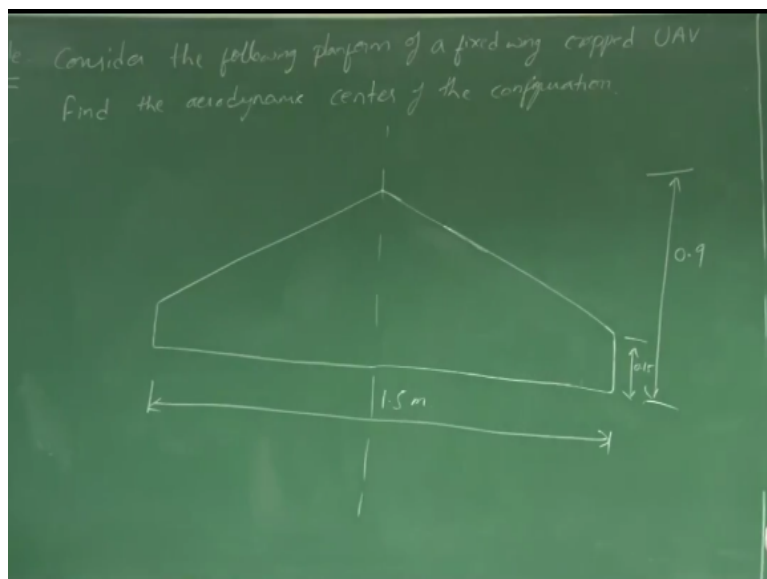 Consider the following planform of a fixed wing cropped UAV
Find the aerodynamic center of the configuration.
0.9
0.15
1.5 m